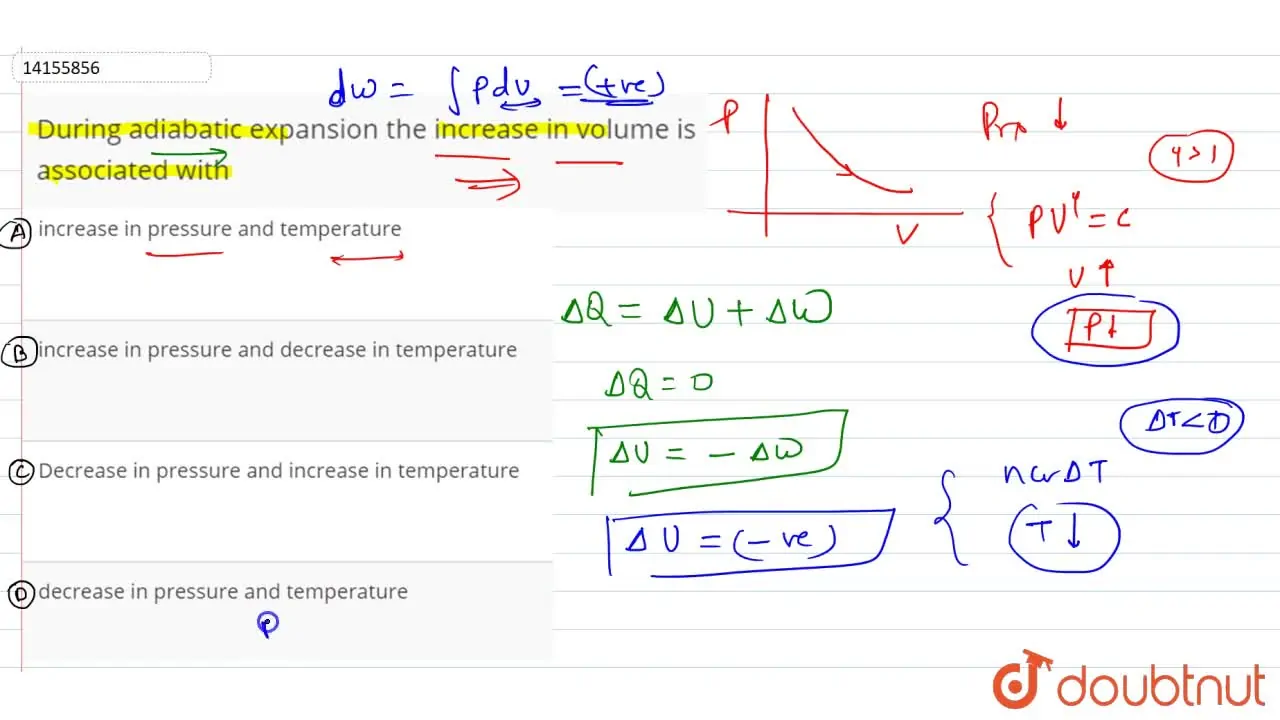 14155856
dw = ∫ P dv = (+ve)
During adiabatic expansion the increase in volume is
associated with
A increase in pressure and temperature
B increase in pressure and decrease in temperature
C Decrease in pressure and increase in temperature
D decrease in pressure and temperature
P
P
V
↓
γ>1
PVᵞ = C
V ↑
P↓
ΔQ = ΔU + ΔW
ΔQ = 0
ΔU = - ΔW
ΔU = (-ve)
ΔT<0
nCvΔT
T ↓
doubtnut